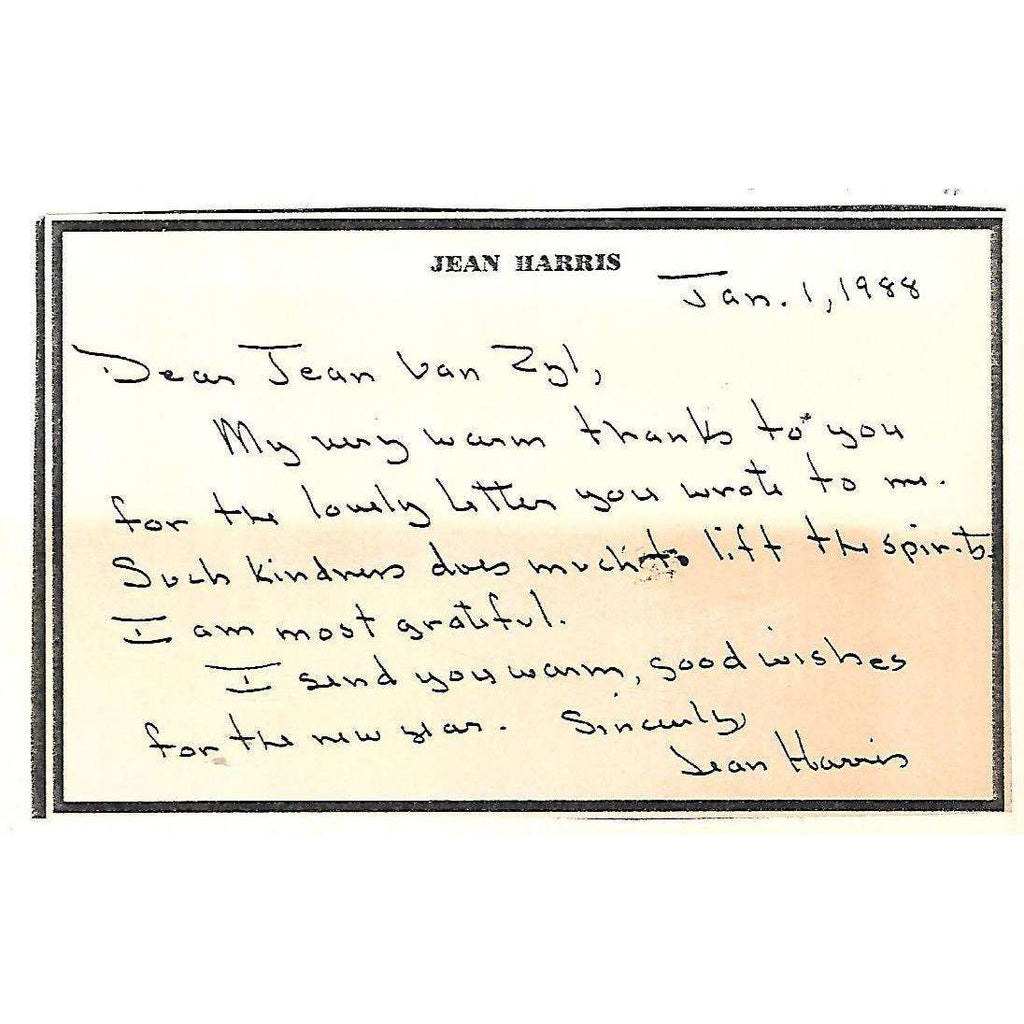 JEAN HARRIS
Jan. 1, 1988
Dear Jean Van Zyl,
My very warm thanks to you
for the lovely letter you wrote to me.
Such kindness does much to lift the spirits.
I am most grateful.
I send you warm, good wishes
for the new year. Sincerely
Jean Harris